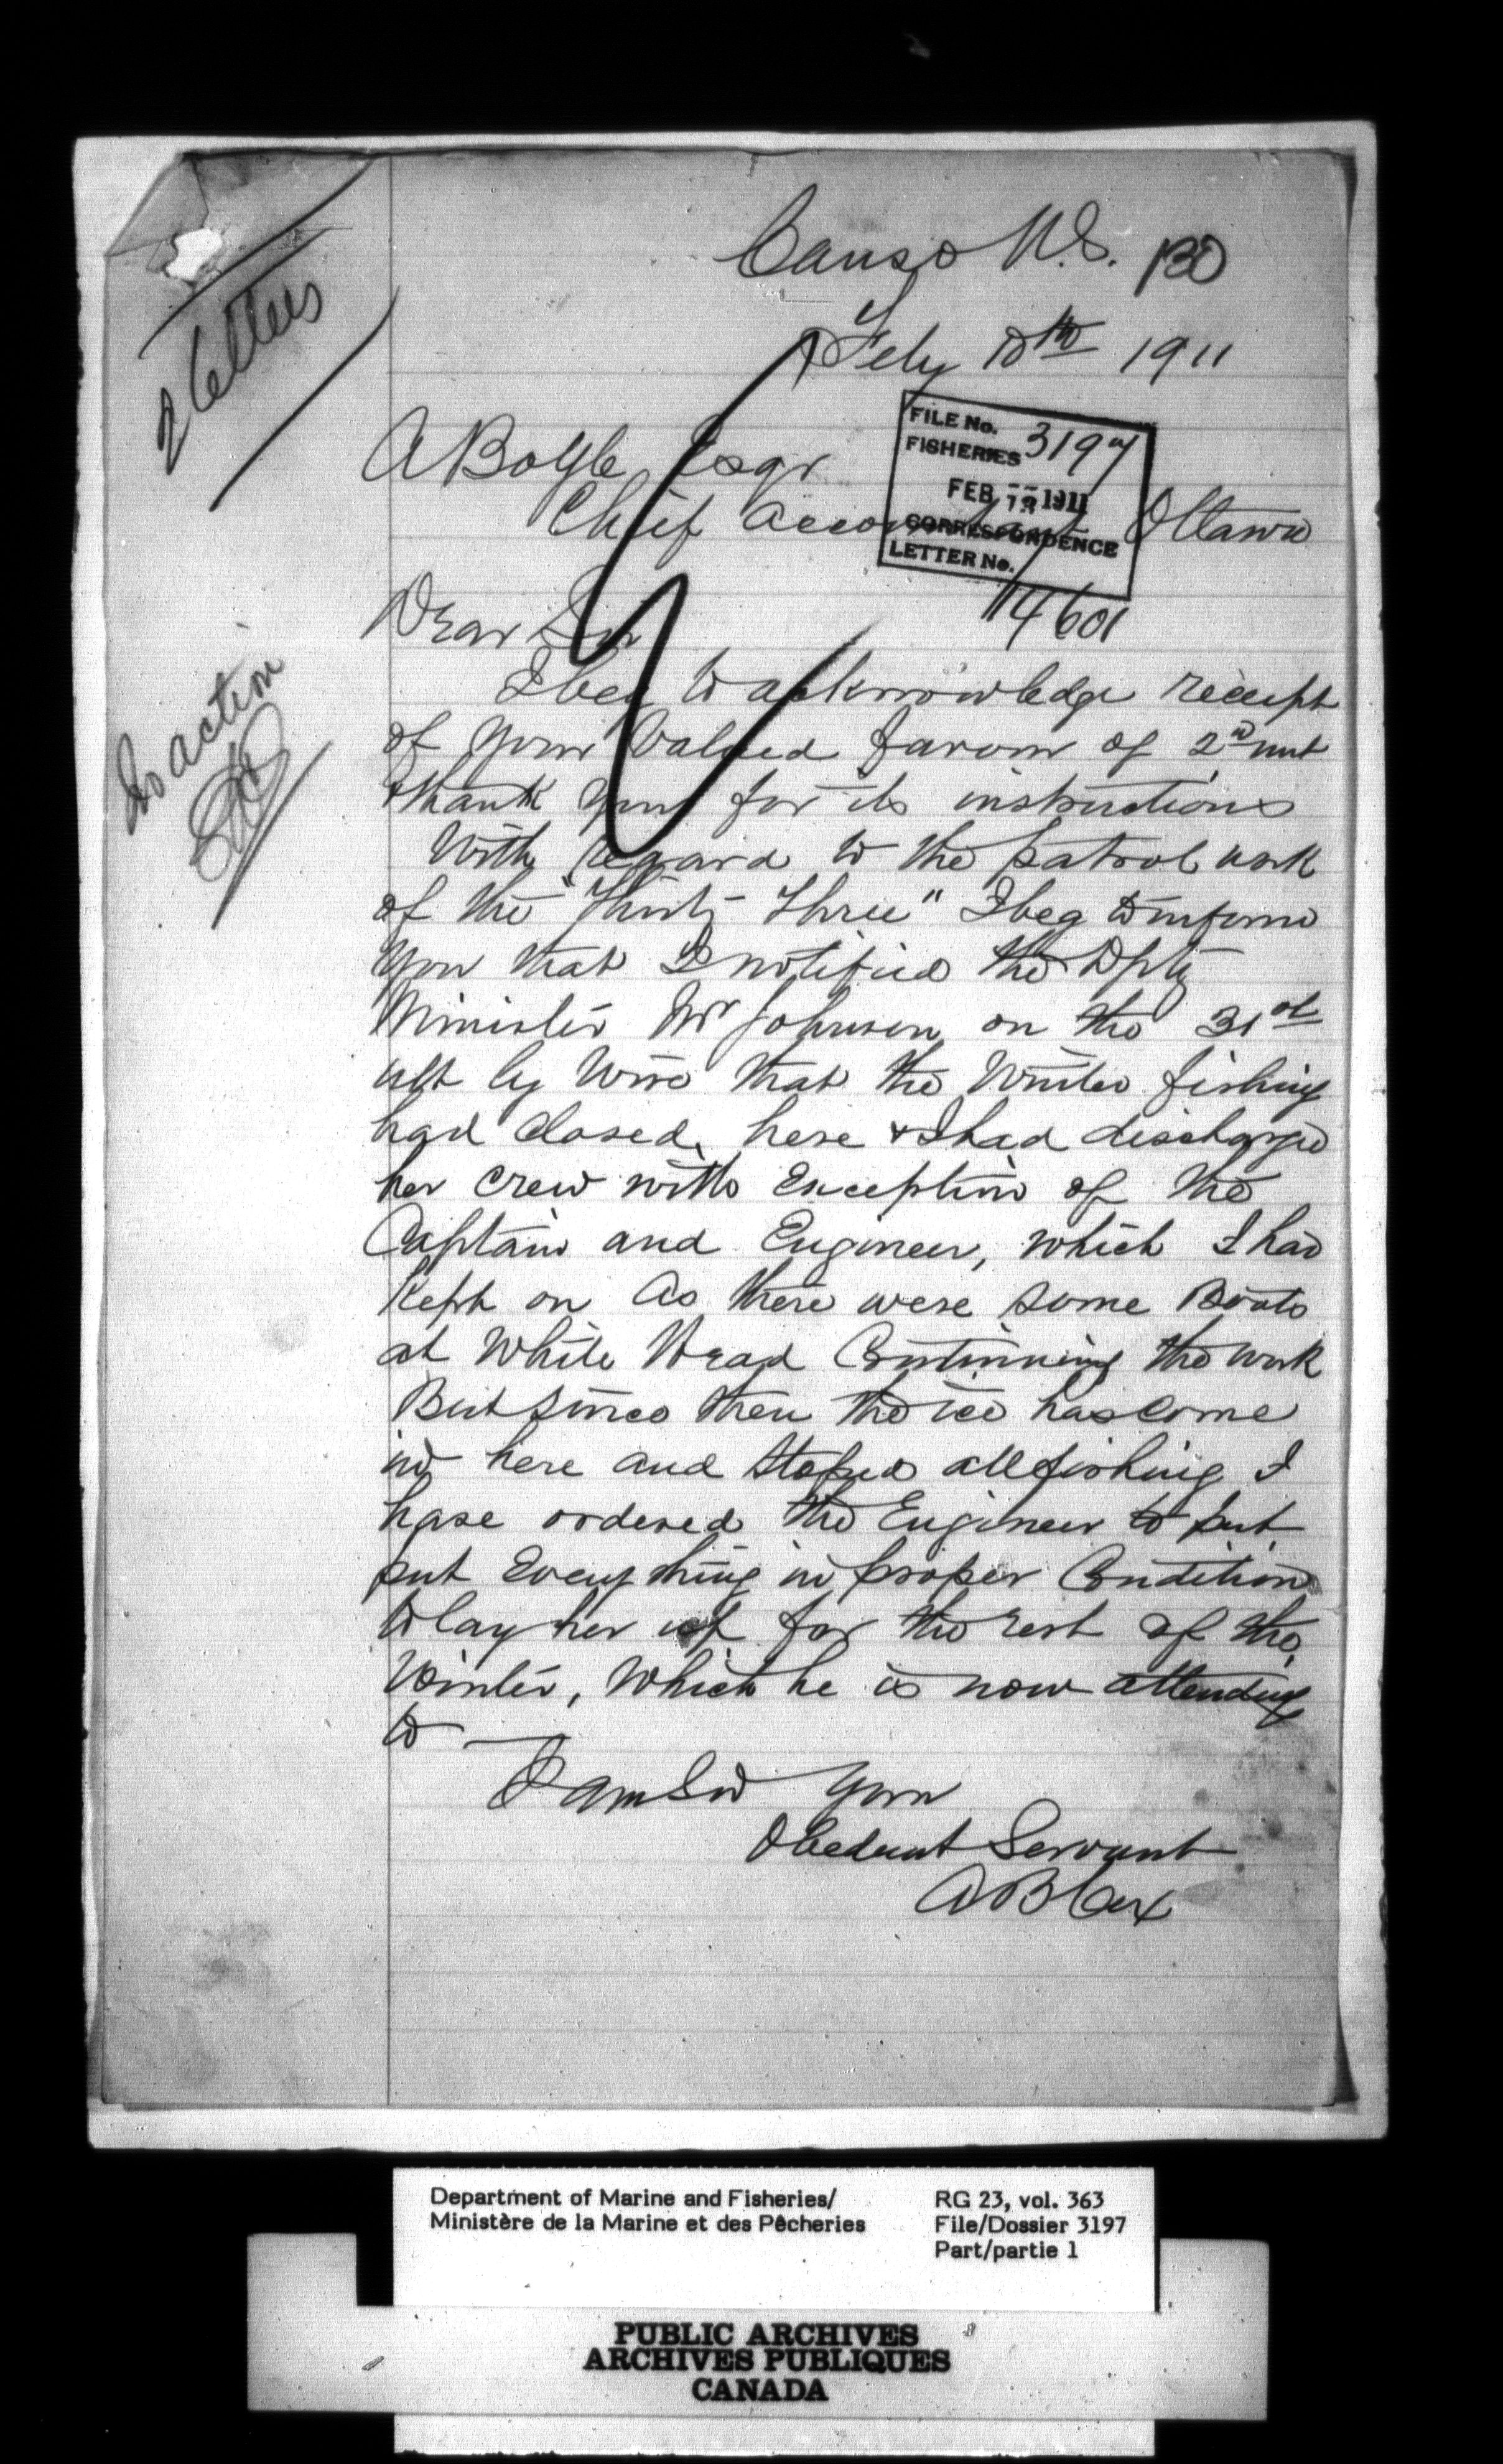 Canso N.S. 130
Feby 10th 1911
2 letters
FILE No. 3197
FISHERIES
FEB 13 1911
CORRESPONDENCE
LETTER No.
14601
A Boyle Esqr
Chief Accountant Ottawa
Dear Sir
I beg to acknowledge receipt
of your valued favour of 2nd inst
thank you for its instructions
No action
With regard to the patrol work
of the "Thirty Three" I beg to inform
you that I notified the Dpty
Minister Mr Johnson on the 31st
ult by wire that the Winter fishing
had closed, here & I had discharged
her crew with Exception of the
Captain and Engineer, which I had
Kept on as there were some Boats
at White Head Continuing the work
But since then the ice has come
in here and stoped all fishing I
have ordered the Engineer to put
put Everything in proper Condition
to lay her up for the rest of the
Winter, which he is now attending
to
I am Sir Your
Obedient Servant
A B Cox
Department of Marine and Fisheries/
Ministère de la Marine et des Pêcheries
RG 23, vol. 363
File/Dossier 3197
Part/partie 1
PUBLIC ARCHIVES
ARCHIVES PUBLIQUES
CANADA